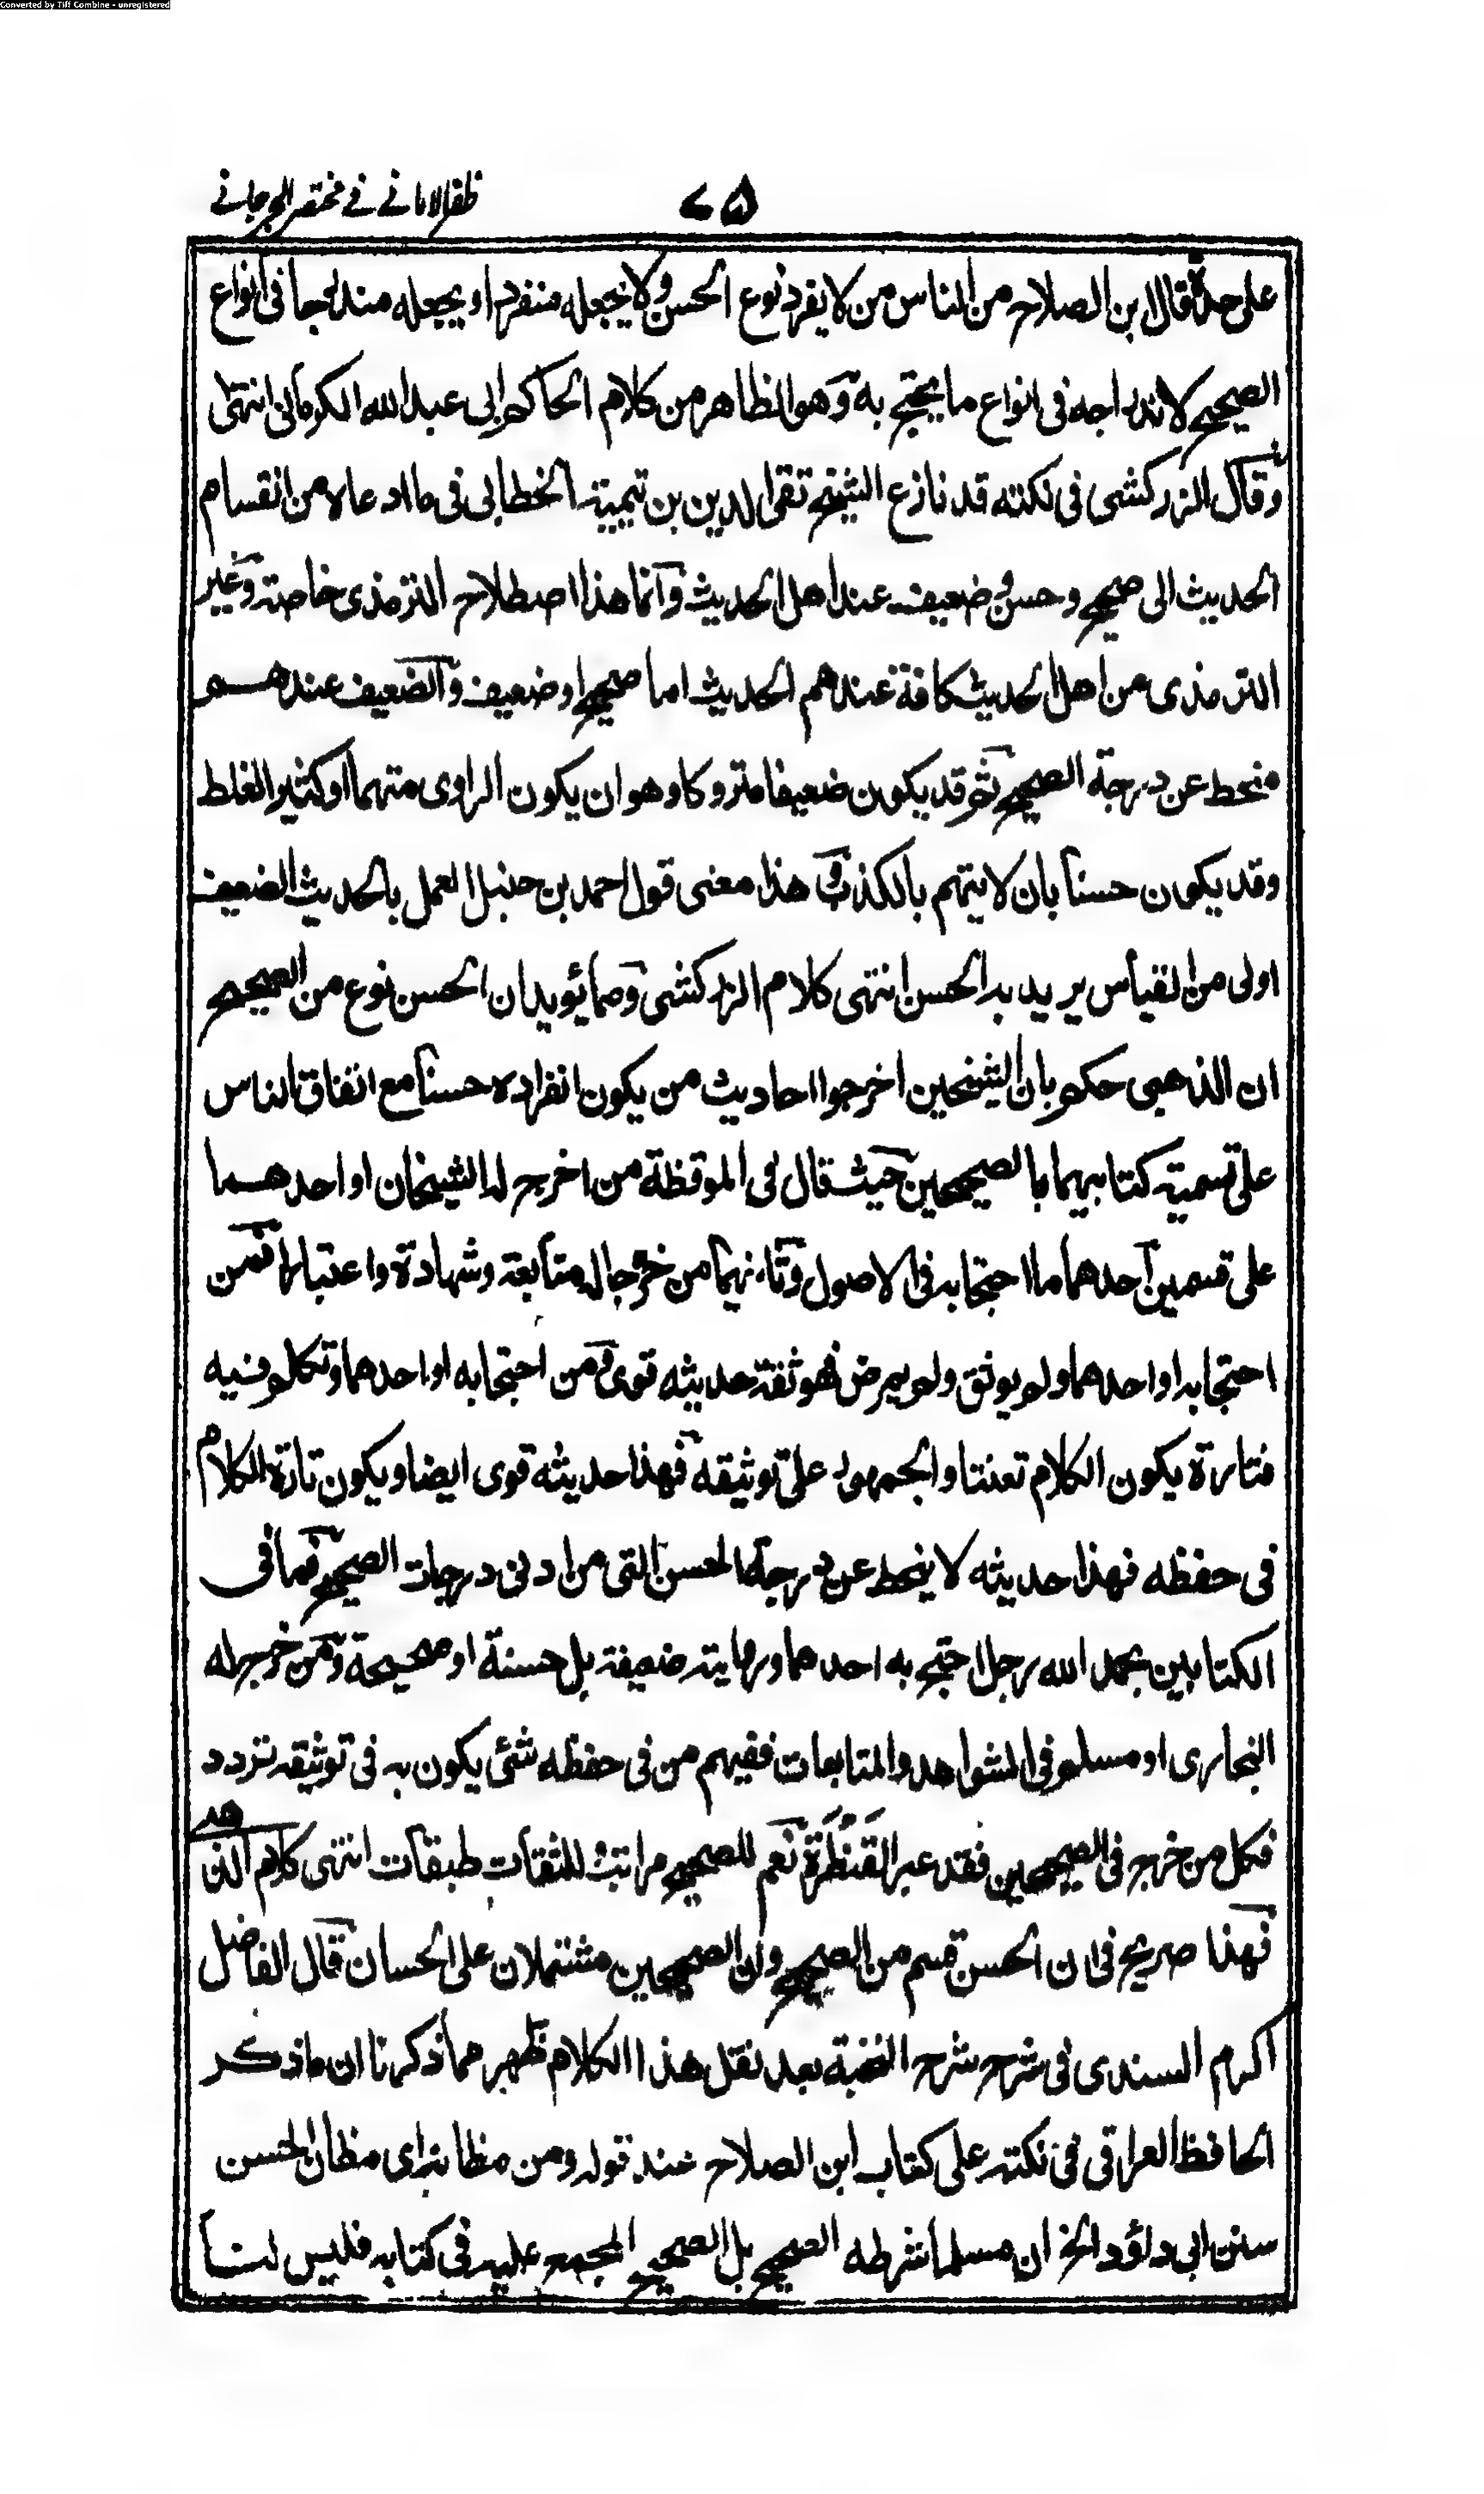 Converted by Tiff Combine - unregistered
ظفر الامانے فے مختصر الجرجانے
٧٥
على حدة قال ابن الصلاح من الناس من لا يفرد نوع الحسن ولا يجعله منفردا ويجعله مندرجا فى انواع
الصحيح لاندراجه فى انواع ما يحتج به وهو الظاهر من كلام الحاكم ابى عبد الله الكرمانى انتهى
وقال الزركشى فى نكته قد نازع الشيخ تقى الدين بن تيمية الخطابى فى ما ادعاه من انقسام
الحديث الى صحيح وحسن وضعيف عند اهل الحديث وانما هذا اصطلاح الترمذى خاصة وغير
الترمذى من اهل الحديث كافة عندهم الحديث اما صحيح او ضعيف والضعيف عندهم
منحط عن درجة الصحيح ثم قد يكون ضعيفا متروكا وهو ان يكون الراوى متهما او كثير الغلط
وقد يكون حسنا بان لا يتهم بالكذب وهذا معنى قول احمد بن حنبل العمل بالحديث الضعيف
اولى من القياس يريد به الحسن انتهى كلام الزركشى ومما يؤيد ان الحسن نوع من الصحيح
ان الذهبى حكم بان الشيخين اخرجوا احاديث من يكون انفراده حسنا مع اتفاق الناس
على تسمية كتابيهما بالصحيحين حيث قال فى الموقظة من اخرج له الشيخان او احدهما
على قسمين احدهما ما احتجا به فى الاصول وثانيهما من خرجا له متابعة وشهادة واعتبارا فمن
احتجا به او احدهما ولم يوثق ولم يمرض فهو ثقة حديثه قوى ومن احتجا به او احدهما وتكلم فيه
فتارة يكون الكلام تعنتا والجمهور على توثيقه فهذا حديثه قوى ايضا ويكون تارة الكلام
فى حفظه فهذا حديثه لا ينحط عن درجة الحسن التى من ادنى درجات الصحيح فما فى
الكتابين بحمد الله رجل احتج به احدهما ورواية ضعيفة بل حسنة او صحيحة ومن خرج له
البخارى او مسلم فى الشواهد والمتابعات ففيهم من فى حفظه شئ يكون به فى توثيقه تردد
فكل من خرج فى الصحيحين فقد عبر القنطرة نعم للصحيح مراتب للثقات طبقات انتهى كلام الذهبى
فهذا صريح فى ان الحسن قسم من الصحيح وان الصحيحين مشتملان على الحسان قال الفاضل
اكرم السندى فى شرح شرح النخبة بعد نقل هذا الكلام ظهر مما ذكرنا ان ما ذكر
الحافظ العراقى فى نكته على كتاب ابن الصلاح عند قوله ومن مظانه اى مظان الحسن
سنن ابى داؤد الخ ان مسلما شرطه الصحيح بل الصحيح المجمع عليه فى كتابه فليس لنا